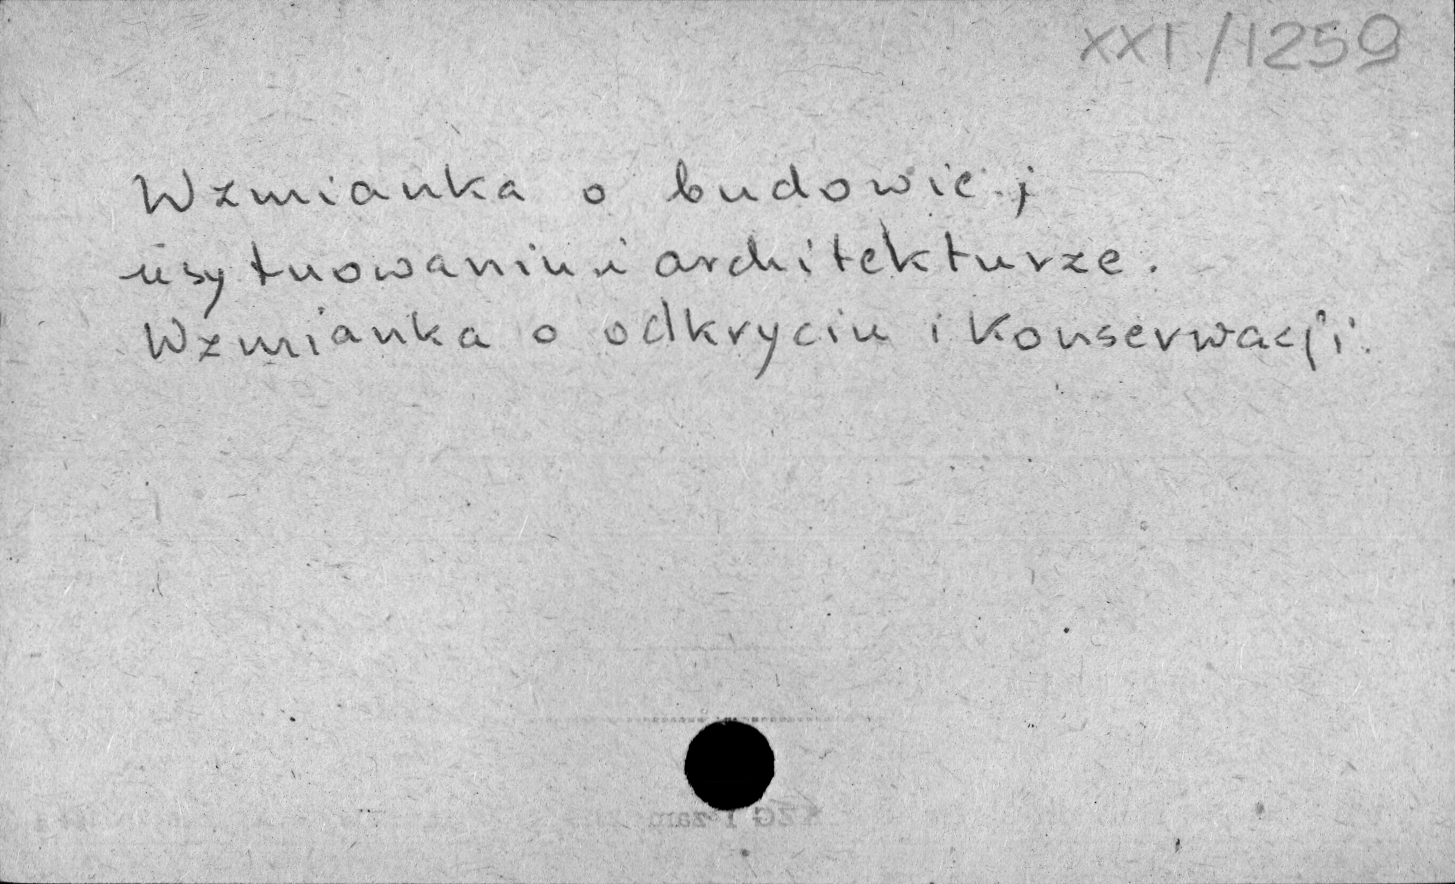 XXI/1259
Wzmianka o budowie,
usytuowaniu i architekturze.
Wzmianka o odkryciu i konserwacji.